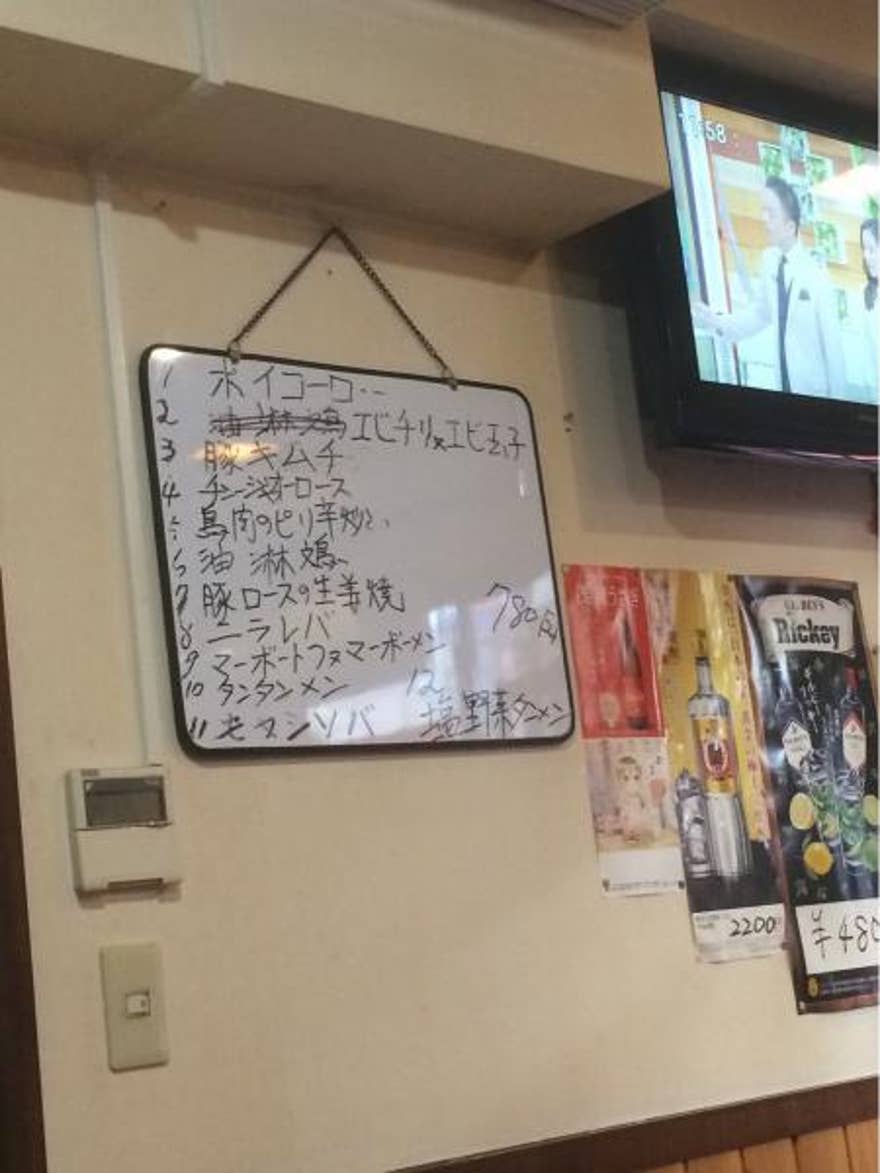 58
1 ホイコーロー
2 油淋鶏 エビチリ又エビ玉子
3 豚キムチ
4 チンジャオロース
5 鳥肉のピリ辛炒め
6 油淋鶏
7 豚ロースの生姜焼
780円
8 ニラレバ
9 マーボートフ又マーボーメン
10 タンタンメン
12
11 モツ
塩野菜タンメン
Rickey
2200
¥480